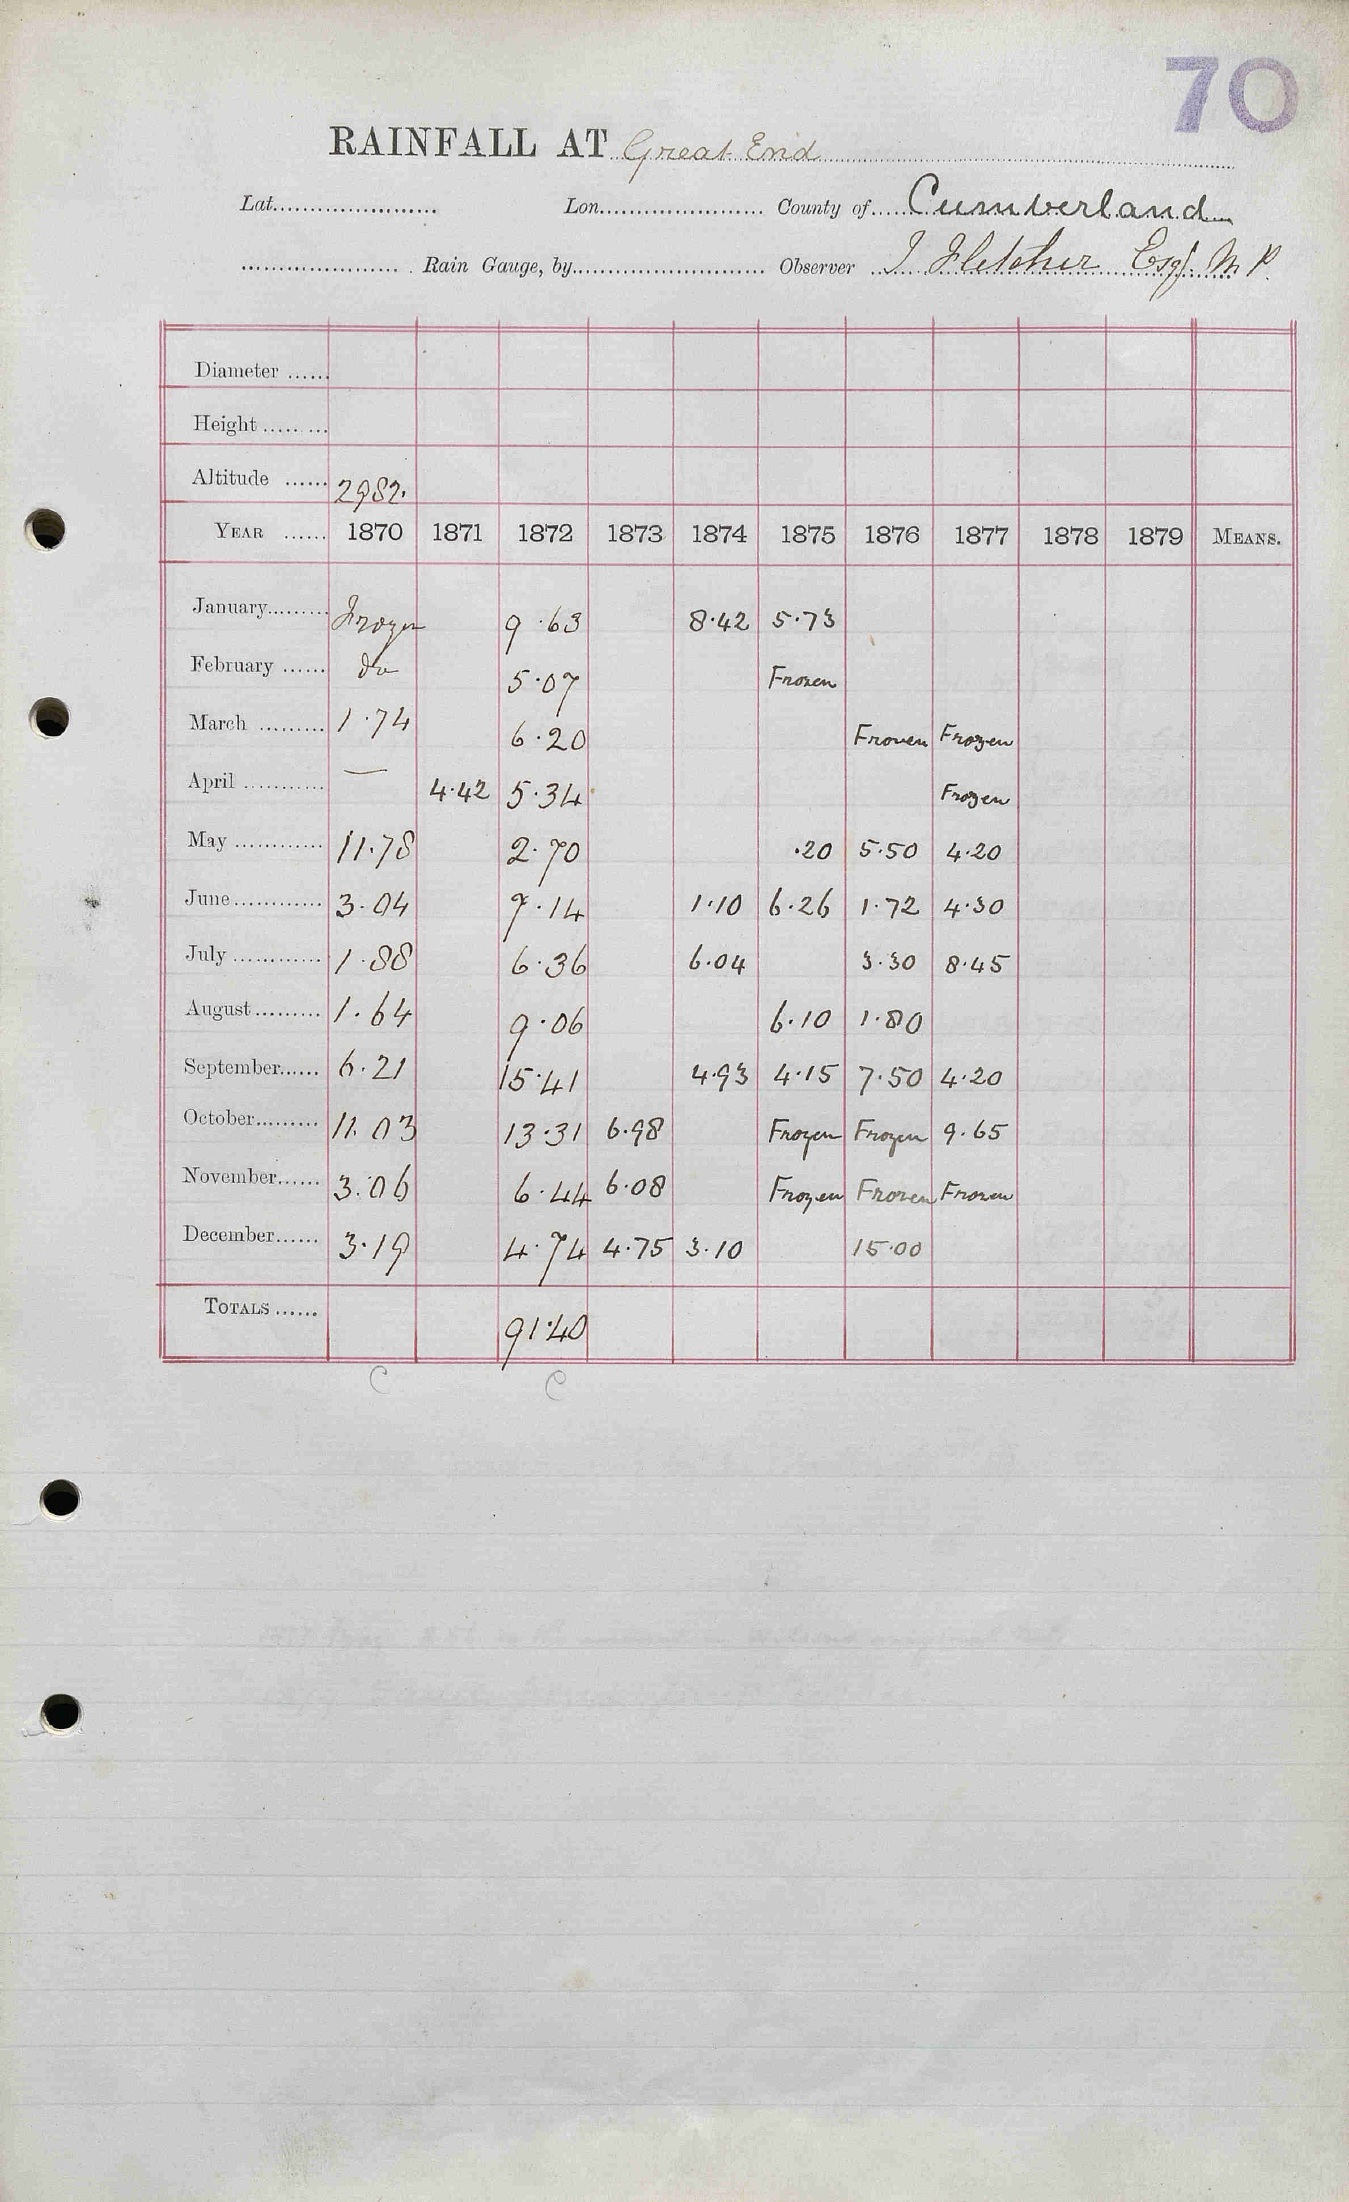 70
RAINFALL AT Great End
Lat. Lon. County of Cumberland
Rain Gauge, by Observer I Fletcher Esq. M P.
Diameter ......
Height ........
Altitude ...... 2982.
YEAR ...... 1870 1871 1872 1873 1874 1875 1876 1877 1878 1879 MEANS.
January......... Frozen 9.63 8.42 5.73
February ...... do 5.07 Frozen
March ......... 1.74 6.20 Frozen Frozen
April ........... — 4.42 5.34 Frozen
May ............ 11.78 2.70 .20 5.50 4.20
June............ 3.04 7.14 1.10 6.26 1.72 4.30
July ............ 1.88 6.36 6.04 3.30 8.45
August......... 1.64 9.06 6.10 1.80
September...... 6.21 15.41 4.93 4.15 7.50 4.20
October......... 11.03 13.31 6.98 Frozen Frozen 9.65
November...... 3.06 6.44 6.08 Frozen Frozen Frozen
December...... 3.19 4.74 4.75 3.10 15.00
TOTALS ...... 91.40
C C